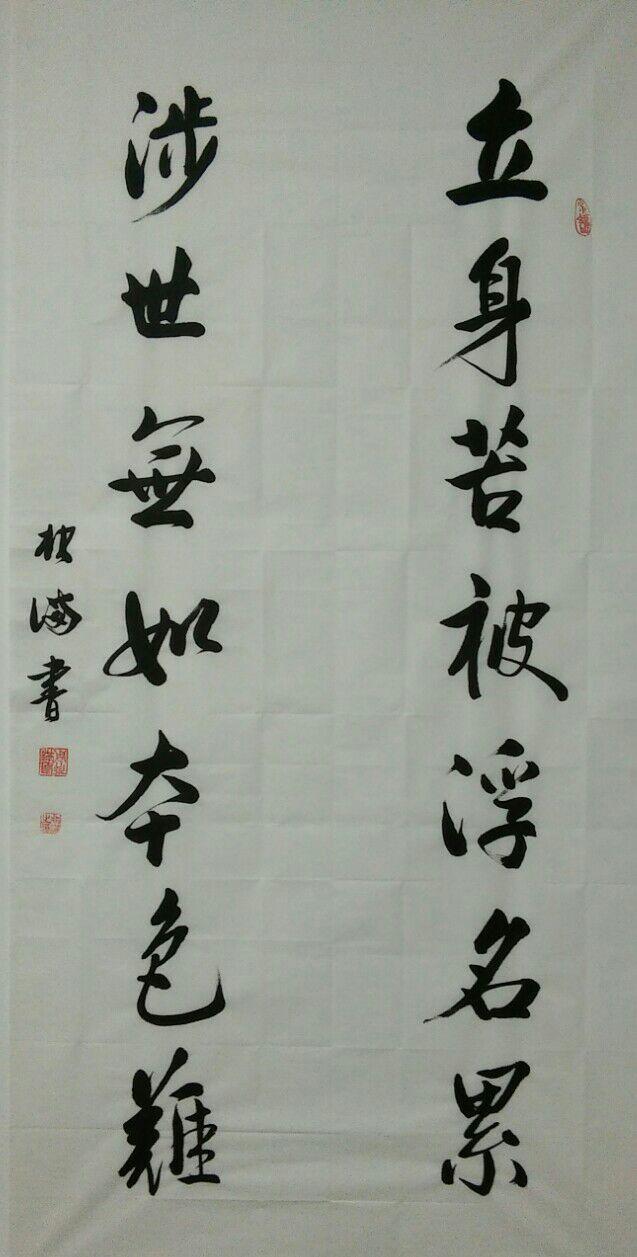 立身苦被浮名累
涉世無如本色難
書